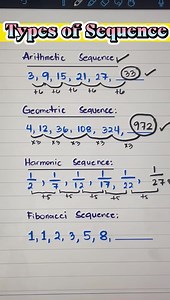 Types of Sequence
Arithmetic Sequence ✓
3, 9, 15, 21, 27, 33 ✓
+6 +6 +6 +6 +6
Geometric Sequence:
4, 12, 36, 108, 324, 972 ✓
x3 x3 x3 x3 x3
Harmonic Sequence:
1/2, 1/7, 1/12, 1/17, 1/22, 1/27
+5 +5 +5 +5 +5
Fibonacci Sequence:
1, 1, 2, 3, 5, 8, ____